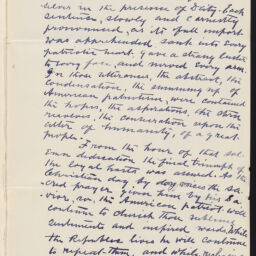 in the presence of Deity. Each
sentence, slowly and earnestly
pronounced, as its full import
was apprehended, sank into every
patriotic heart, gave a strong lustre
to every face, and nerved every arm.
In those utterances, the abstract, the
condensation, the summing up of
American patriotism, were contained
the hopes, the aspirations, the stern
resolves, the consecration upon the
altar of humanity, of a great
people.
From the hour of that sol-
emn dedication the final triumph of
the loyal hosts was assured. As the
Christian day by day voices the sa-
cred prayer given him by his Sa-
vior, so, the American patriot will
continue to cherish those sublime
sentiments and inspired words. While
the Republic lives he will continue
to repeat them, and while